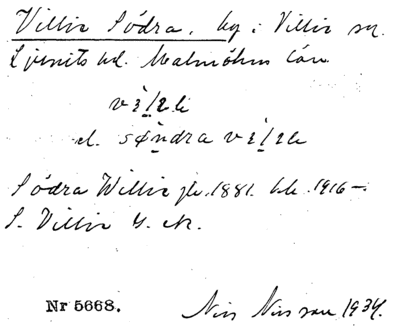 Villie Södra, by i Villie sn.
Ljunits hd. Malmöhus län
vìlɩe
el. sø̀ndra vìlɩe
Södra Willie jb. 1881. kb. 1916–.
S. Villie G. K.
Nr 5668. Nils Nilsson 1934.